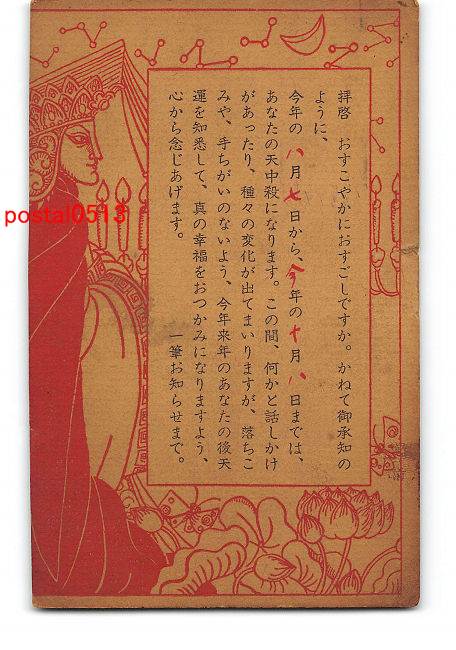 拝啓　おすこやかにおすごしですか。かねて御承知の
ように、
今年の八月七日から、今年の十月八日までは、
あなたの天中殺になります。この間、何かと話しかけ
があったり、種々の変化が出てまいりますが、落ちこ
みや、手ちがいのないよう、今年来年のあなたの後天
運を知悉して、真の幸福をおつかみになりますよう、
心から念じあげます。
一筆お知らせまで。
postal0513